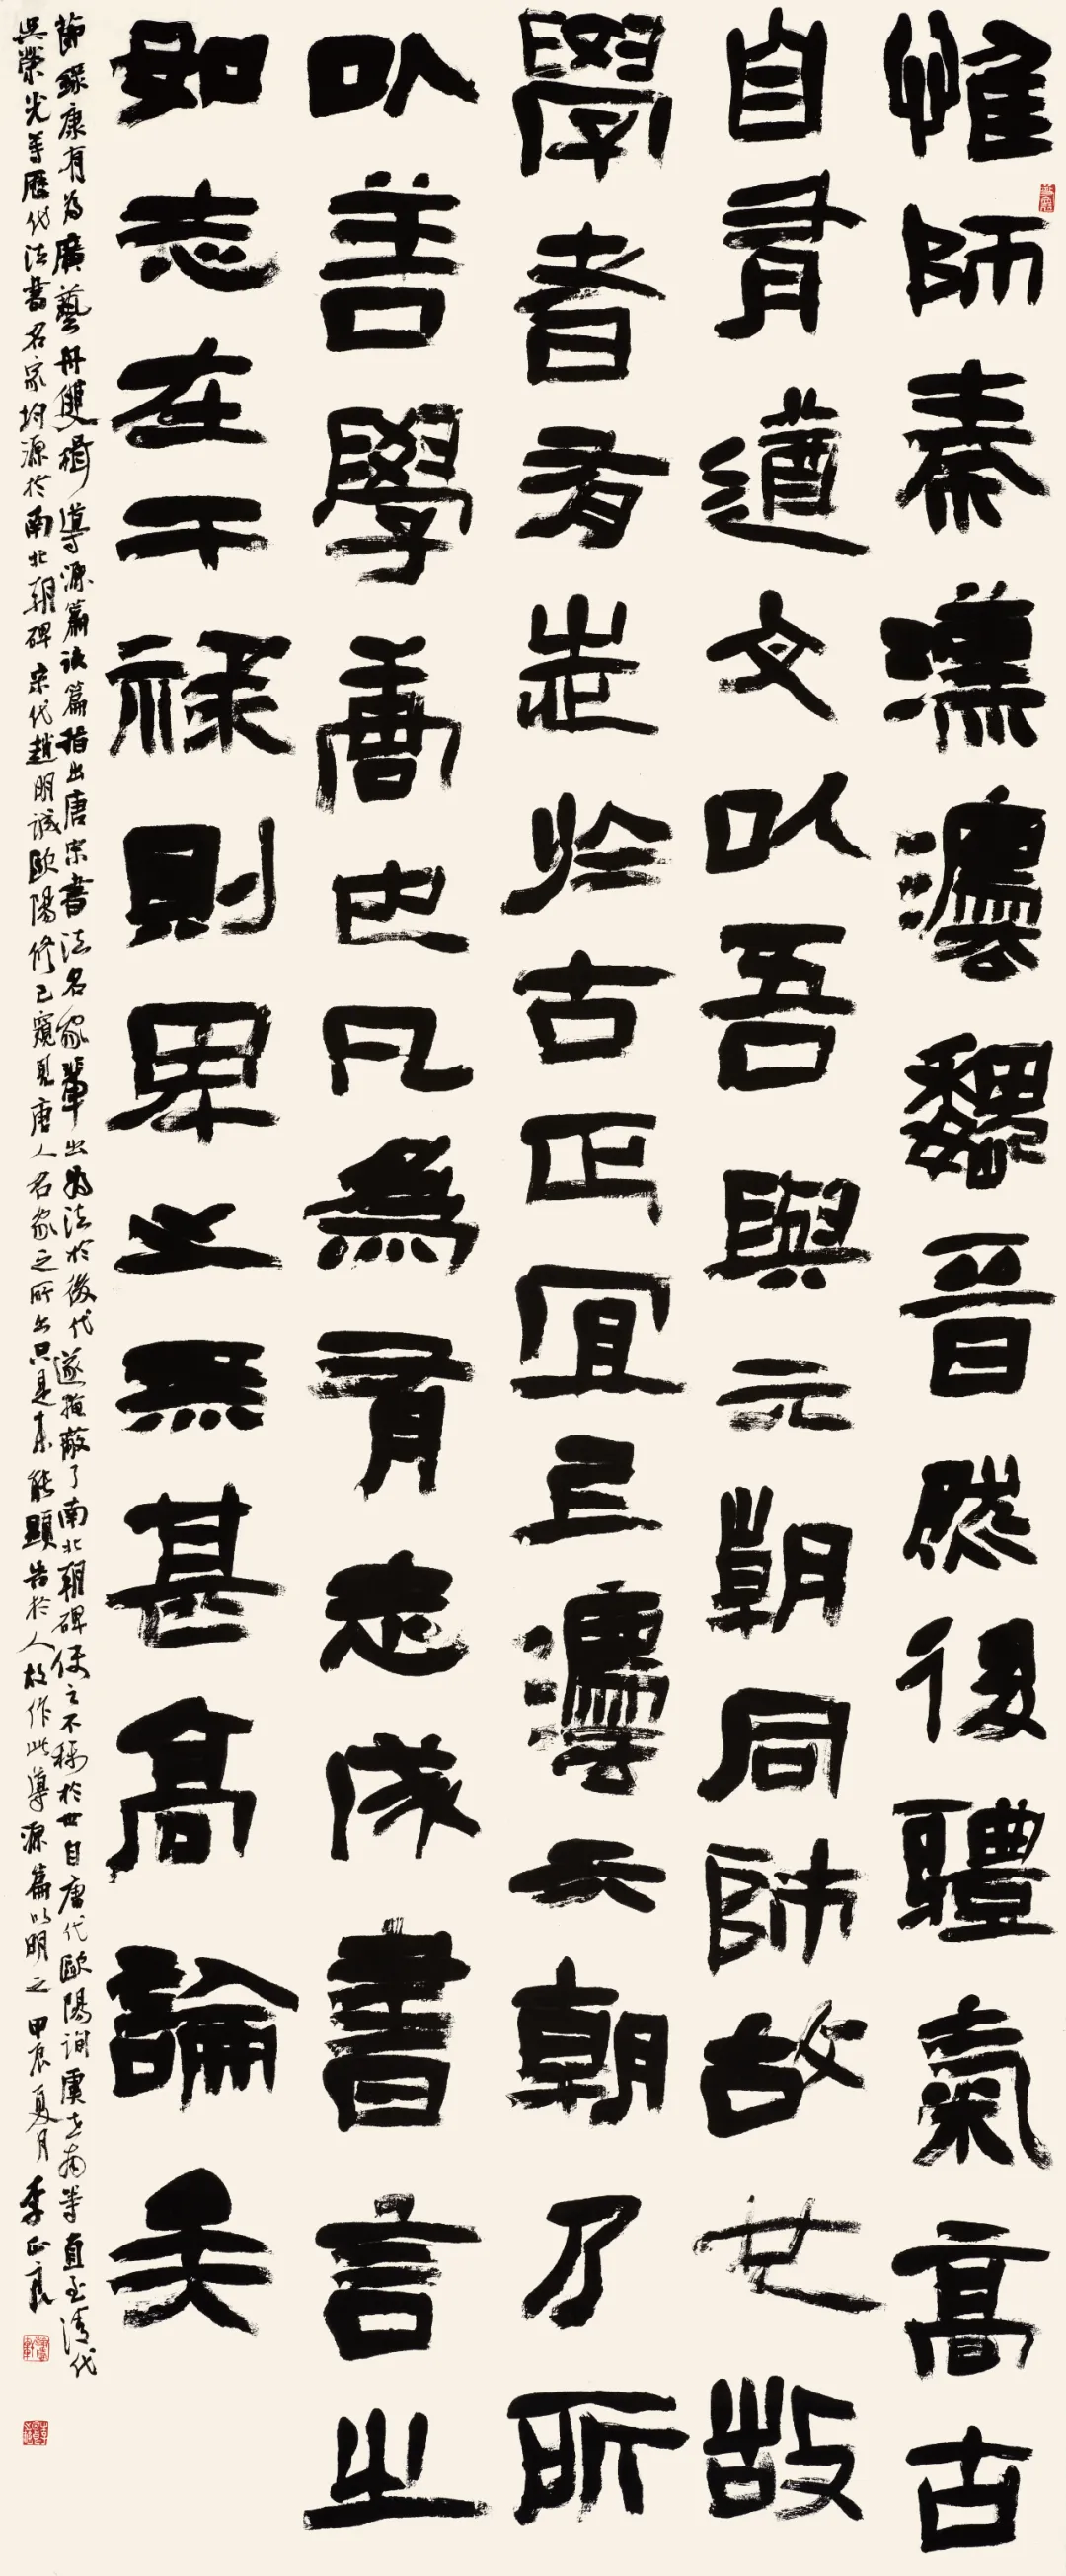 惟師秦漢灋魏晉然後體氣高古
自有遒文以吾與六朝同師故也故
學者有志於古正宜上灋六朝乃所
以善學唐也凡為有志成書言之
如志在干祿則卑之無甚高論矣
節錄康有為廣藝舟雙楫導源篇該篇指出唐宋書法名家輩出為法於後代遂掩蔽了南北朝碑使之不稱於世自唐代歐陽詢虞世南等直至清代
吳榮光等歷代法書名家均源於南北朝碑宋代趙明誠歐陽修已窺見唐人名家之所出只是未能顯告於人故作此導源篇以明之甲辰夏月李正良